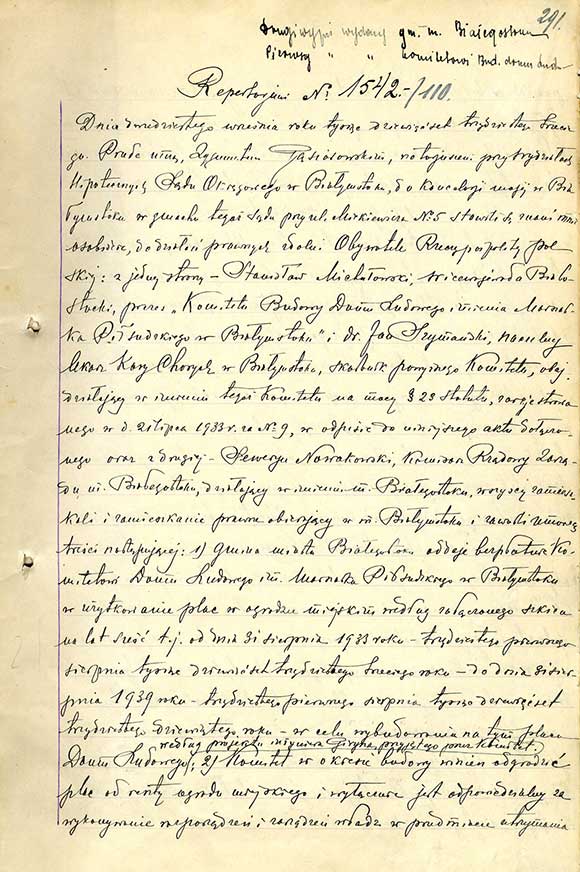 291.
Drugi wypis wydany gm. m. Białegostoku
Pierwszy " " Komitetowi Bud. domu
Repertorjum № 1542.-/110.
Dnia dwudziestego września roku tysiąc dziewięćset trzydziestego trzeciego
go. Przede mną, Zygmuntem Gąsiorowskim, notarjuszem przy Wydziale
Hipotecznym Sądu Okręgowego w Białymstoku, do kancelarji mojej w Bia-
łymstoku w gmachu tegoż Sądu przy ul. Mickiewicza № 5 stawili się znani mi
osobiście, do działań prawnych zdolni Obywatele Rzeczypospolitej pol-
skiej: z jednej strony – Stanisław Michałowski, wicewojewoda Biało-
stocki, prezes „Komitetu Budowy Domu Ludowego imienia Marszał-
ka Piłsudskiego w Białymstoku" i dr. Jan Szymański, naczelny
lekarz Kasy Chorych w Białymstoku, skarbnik powyższego Komitetu, obaj
działający w imieniu tegoż Komitetu na mocy § 23 statutu, zarejestrowa-
nego w d. 21 lipca 1933 r. za № 9, w odpisie do niniejszego aktu dołączo-
nego oraz z drugiej – Seweryn Nowakowski, Komisarz Rządowy Zarzą-
du m. Białegostoku, działający w imieniu m. Białegostoku, wszyscy zamiesz-
kali i zamieszkanie prawne obierający w m. Białymstoku i zawarli umowę
treści następującej: 1) Gmina miasta Białegostoku oddaje bezpłatnie Ko-
mitetowi Domu Ludowego im. Marszałka Piłsudskiego w Białymstoku
w użytkowanie plac w ogrodzie miejskim według załączonego szkicu
na lat sześć t.j. od dnia 31 sierpnia 1933 roku – trzydziestego pierwszego
sierpnia tysiąc dziewięćset trzydziestego trzeciego roku – do dnia 31 sier-
pnia 1939 roku – trzydziestego pierwszego sierpnia tysiąc dziewięćset
trzydziestego dziewiątego roku – w celu wybudowania na tym placu
według projektu inżyniera przyjętego przez Komitet.
Domu Ludowego; 2) Komitet w okresie budowy winien odgrodzić
plac od reszty ogrodu miejskiego i wyłącznie jest odpowiedzialny za
wykonywanie rozporządzeń i zarządzeń władz w przedmiocie utrzymania